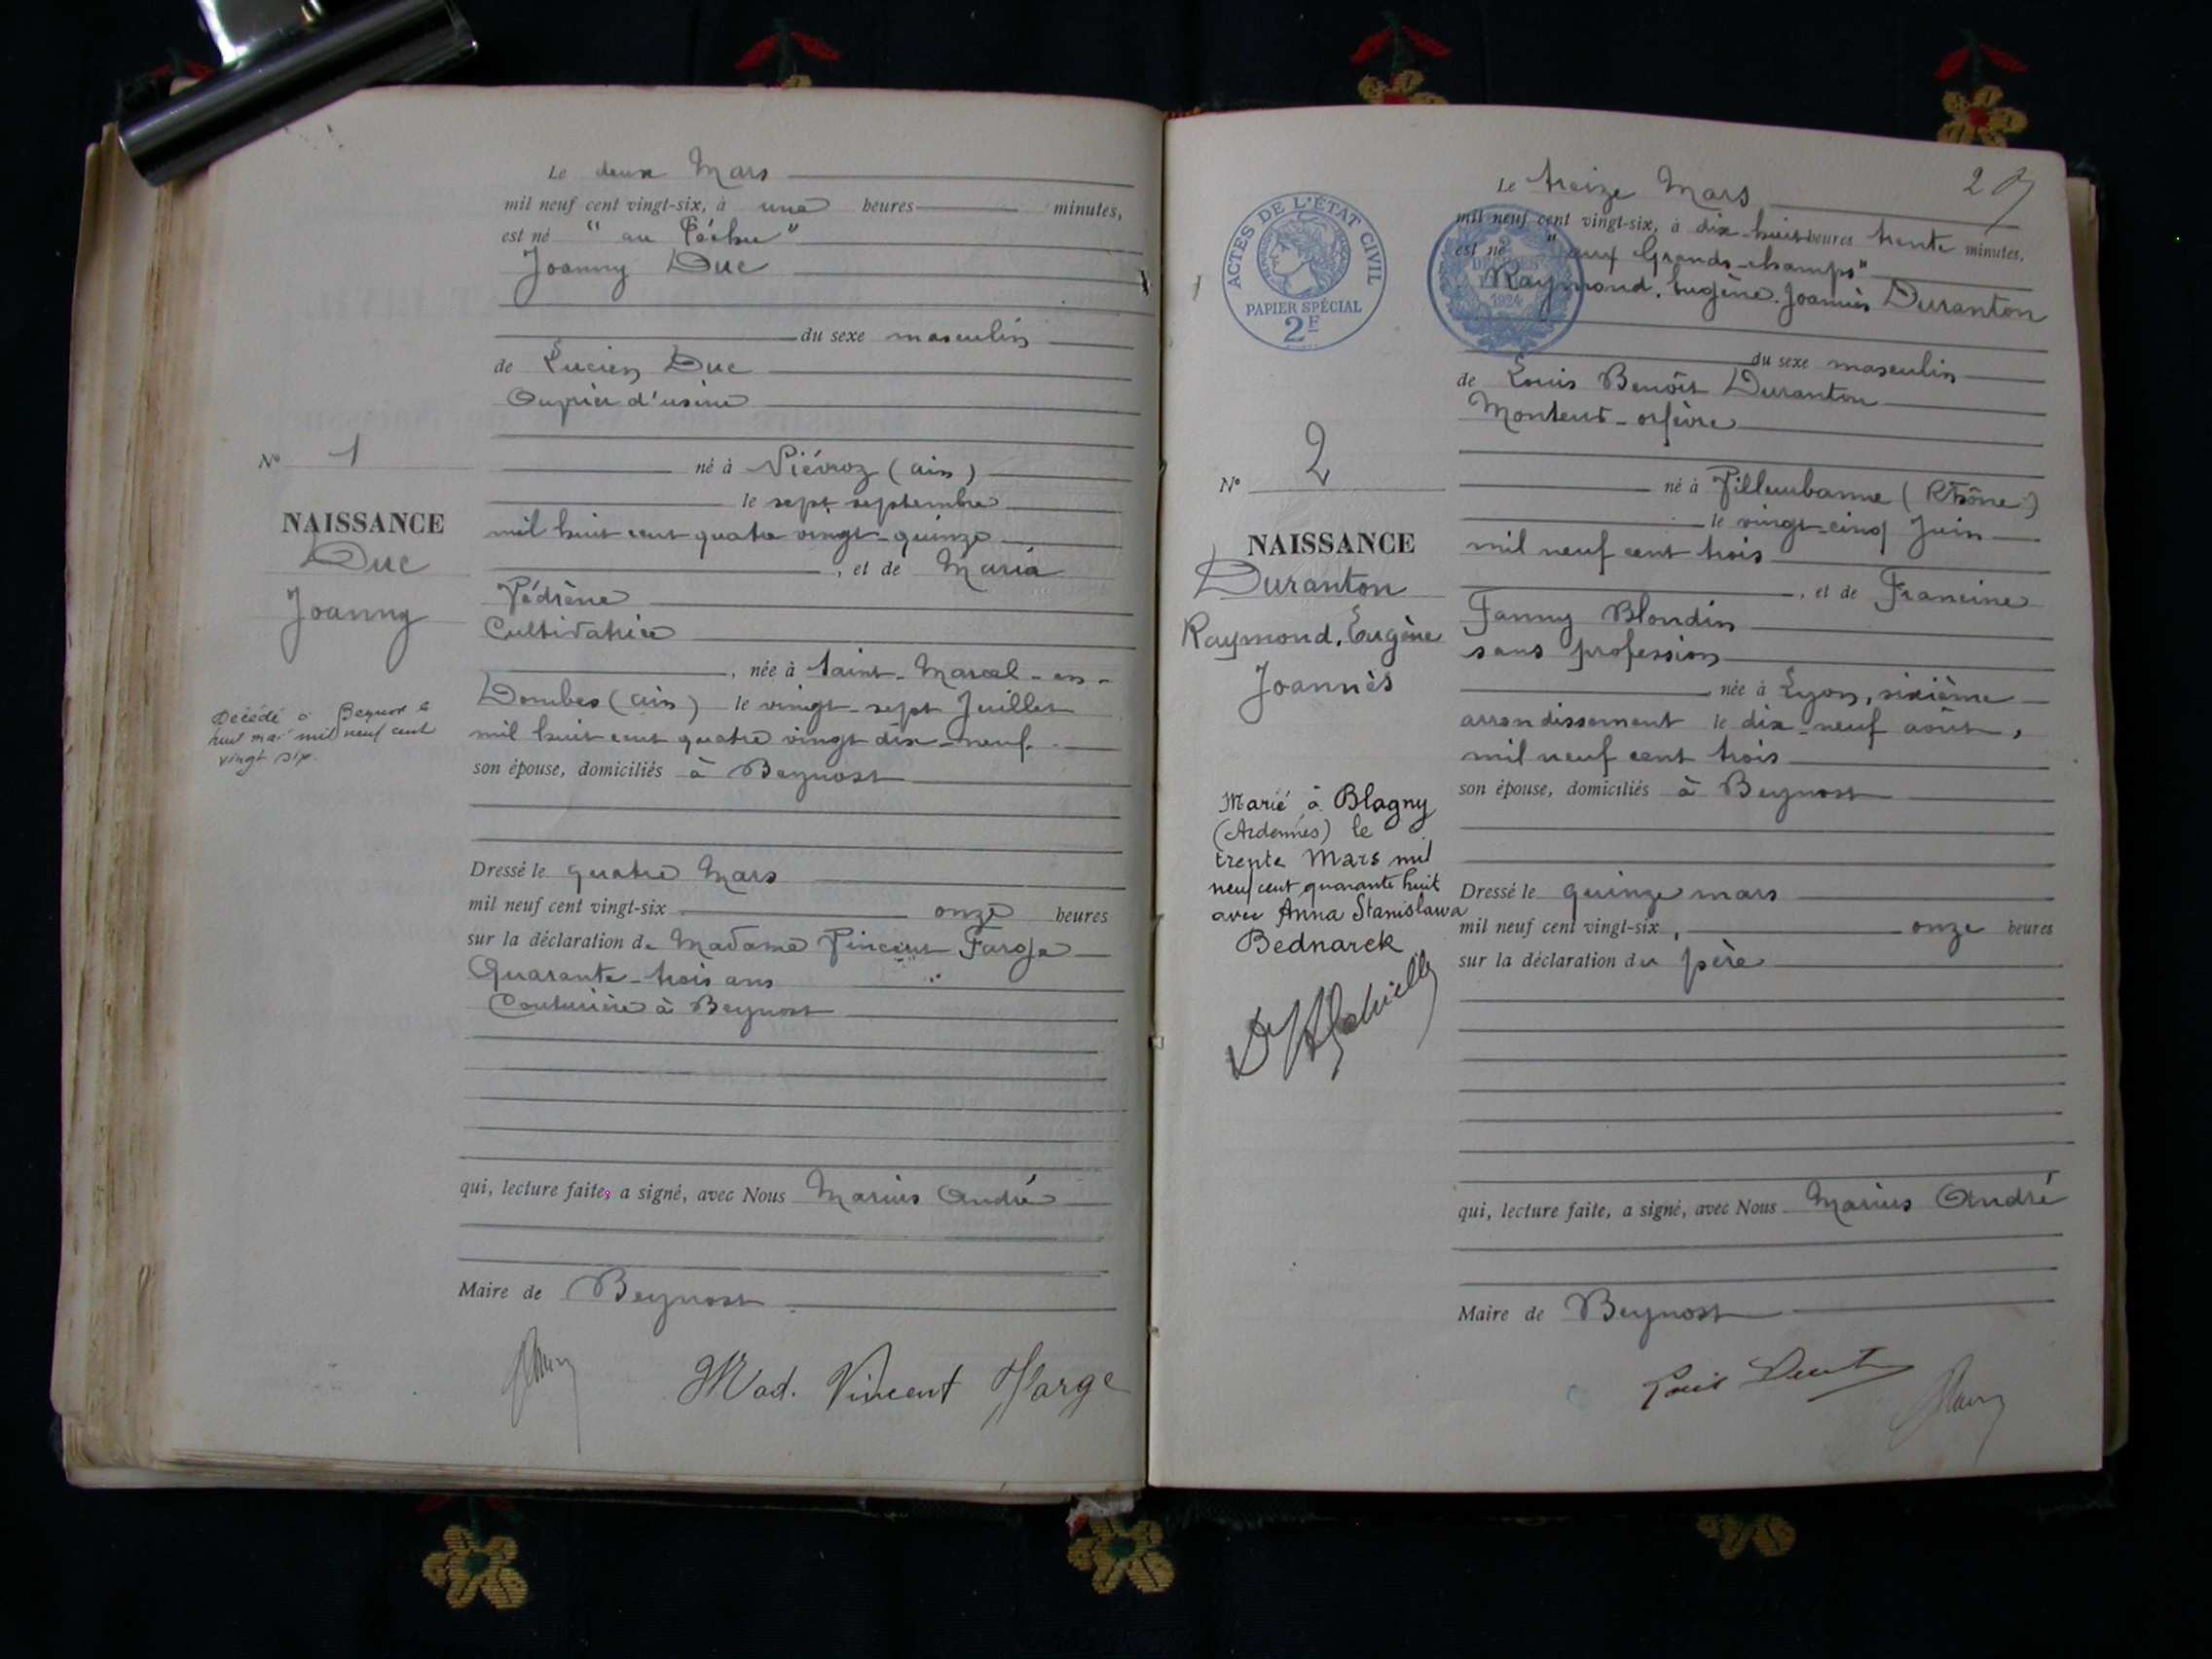 Le deux Mars
mil neuf cent vingt-six, à une heures minutes,
est né "au Péchu"
Joanny Duc
du sexe masculin
de Lucien Duc
Ouvrier d'usine
né à Niévroz (ain)
le sept septembre
mil huit cent quatre vingt-quinze
, et de Maria
Pédrène
Cultivatrice
, née à Saint-Marcel-en-
Dombes (ain) le vingt-sept Juillet
mil huit cent quatre vingt dix-neuf.
son épouse, domiciliés à Beynost
Dressé le quatre Mars
mil neuf cent vingt-six onze heures
sur la déclaration de Madame Vincent Farge
Quarante-trois ans
Couturière à Beynost
qui, lecture faite, a signé, avec Nous Marius André
Maire de Beynost
Mad. Vincent Farge
N° 1
NAISSANCE
Duc
Joanny
Décédé à Beynost le
huit mai mil neuf cent
vingt six.
27
ACTES DE L'ÉTAT CIVIL
PAPIER SPÉCIAL
2F
1924
Le treize Mars
mil neuf cent vingt-six, à dix-huit heures trente minutes,
est né "aux Grands-champs"
Raymond, Eugène, Joannès Duranton
du sexe masculin
de Louis Benoît Duranton
Monteur-orfèvre
né à Villeurbanne (Rhône)
le vingt-cinq Juin
mil neuf cent trois
, et de Francine
Fanny Blondin
sans profession
née à Lyon, sixième
arrondissement le dix-neuf août,
mil neuf cent trois
son épouse, domiciliés à Beynost
Dressé le quinze mars
mil neuf cent vingt-six, onze heures
sur la déclaration du père
qui, lecture faite, a signé, avec Nous Marius André
Maire de Beynost
Louis
N° 2
NAISSANCE
Duranton
Raymond, Eugène
Joannès
Marié à Blagny
(Ardennes) le
trente Mars mil
neuf cent quarante huit
avec Anna Stanislawa
Bednarek